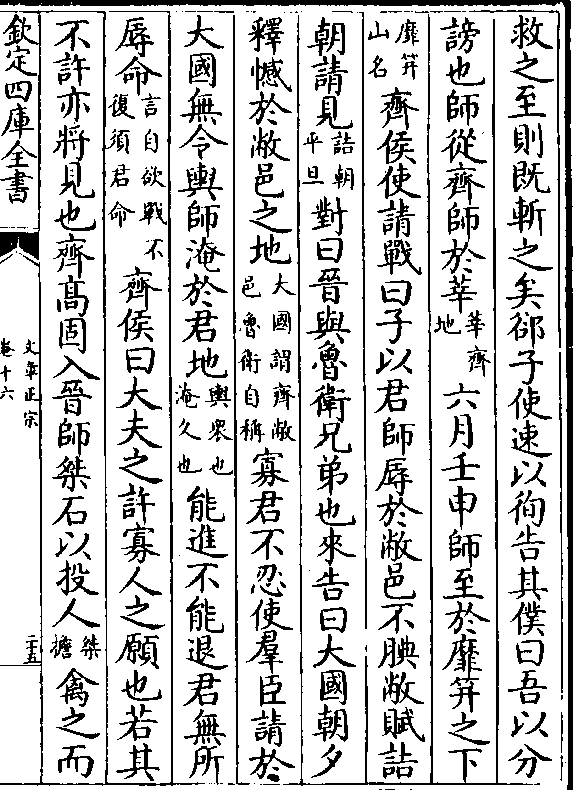 救之至則既斬之矣郤子使速以徇告其僕曰吾以分
謗也師從齊師於莘莘齊地六月壬申師至於靡笄之下
靡笄山名齊侯使請戰曰子以君師辱於敝邑不腆敝賦詰
朝請見詰朝平旦對曰晉與魯衛兄弟也來告曰大國朝夕
釋憾於敝邑之地大國謂齊敝邑魯衛自稱寡君不忍使羣臣請於
大國無令輿師淹於君地輿衆也淹久也能進不能退君無所
辱命言自欲戰不復須君命齊侯曰大夫之許寡人之願也若其
不許亦將見也齊髙固入晉師桀石以投人桀擔禽之而
欽定四庫全書
文章正宗
卷十六
二十五